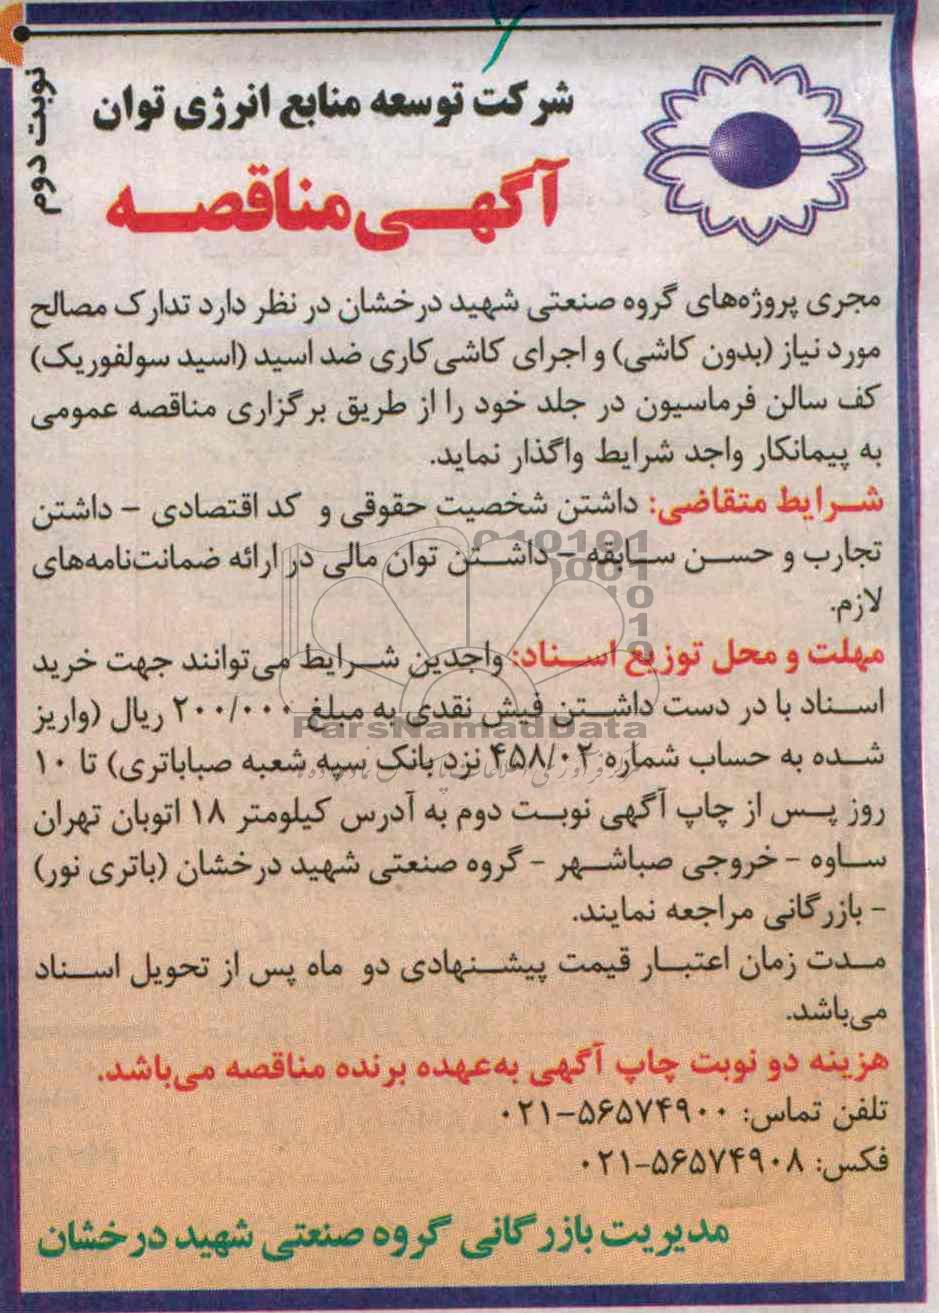 نوبت دوم
شرکت توسعه منابع انرژی توان
آگهی مناقصه
مجری پروژه‌های گروه صنعتی شهید درخشان در نظر دارد تدارک مصالح
مورد نیاز (بدون کاشی) و اجرای کاشی کاری ضد اسید (اسید سولفوریک)
کف سالن فرماسیون در جلد خود را از طریق برگزاری مناقصه عمومی
به پیمانکار واجد شرایط واگذار نماید.
شرایط متقاضی: داشتن شخصیت حقوقی و کد اقتصادی – داشتن
تجارب و حسن سابقه – داشتن توان مالی در ارائه ضمانت‌نامه‌های
لازم.
مهلت و محل توزیع اسناد: واجدین شرایط می‌توانند جهت خرید
اسناد با در دست داشتن فیش نقدی به مبلغ ۲۰۰/۰۰۰ ریال (واریز
شده به حساب شماره ۴۵۸/۰۲ نزد بانک سپه شعبه صباباتری) تا ۱۰
روز پس از چاپ آگهی نوبت دوم به آدرس کیلومتر ۱۸ اتوبان تهران
ساوه - خروجی صباشهر - گروه صنعتی شهید درخشان (باتری نور)
- بازرگانی مراجعه نمایند.
مدت زمان اعتبار قیمت پیشنهادی دو ماه پس از تحویل اسناد
می‌باشد.
هزینه دو نوبت چاپ آگهی به‌عهده برنده مناقصه می‌باشد.
تلفن تماس: ۵۶۵۷۴۹۰۰-۰۲۱
فکس: ۵۶۵۷۴۹۰۸-۰۲۱
مدیریت بازرگانی گروه صنعتی شهید درخشان
ParsNamadData